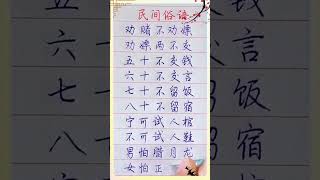 民间俗语
劝赌不劝嫖
劝嫖两不交
五十不交钱
六十不交言
七十不留饭
八十不留宿
宁可试人棺
不可试人鞋
男怕腊月龙
女怕正